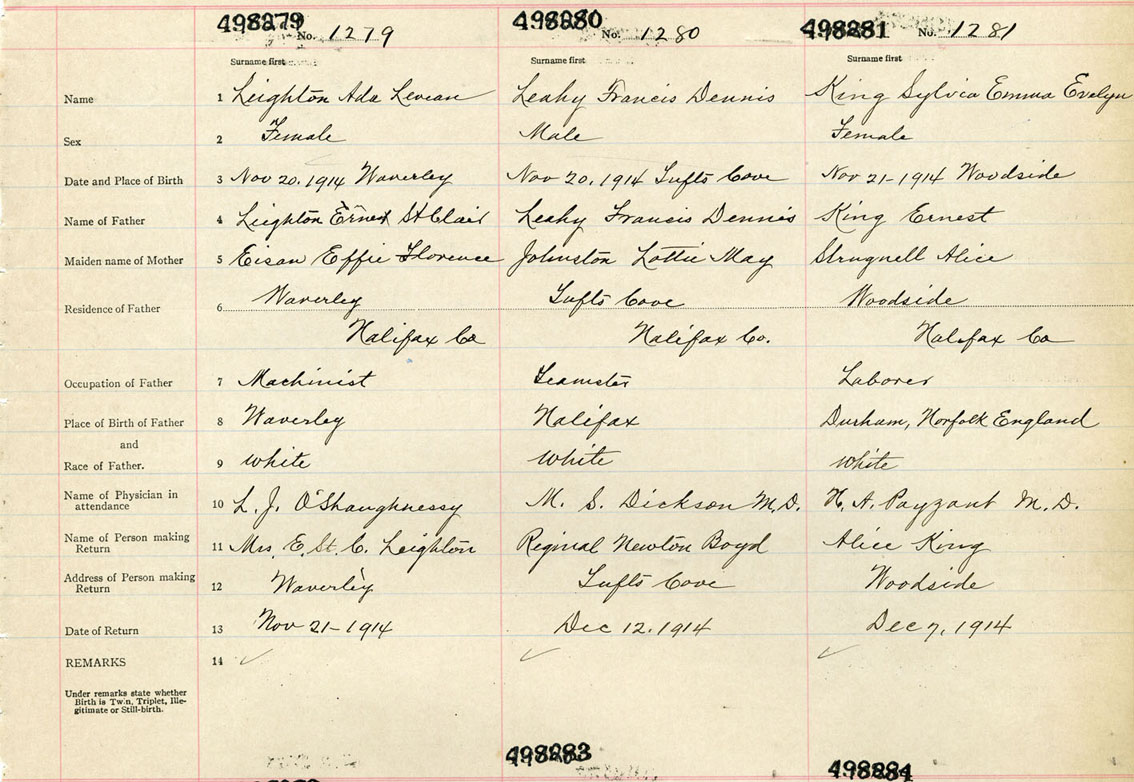 498279 No. 1279 498280 No. 1280 498281 No. 1281
Surname first Surname first Surname first
Name 1 Leighton Ada Levean Leahy Francis Dennis King Sylvia Emma Evelyn
Sex 2 Female Male Female
Date and Place of Birth 3 Nov 20. 1914 Waverley Nov 20, 1914 Tufts Cove Nov 21-1914 Woodside
Name of Father 4 Leighton Ernest St Clair Leahy Francis Dennis King Ernest
Maiden name of Mother 5 Eisan Effie Florence Johnston Lottie May Strugnell Alice
Residence of Father 6 Waverley Tufts Cove Woodside
Halifax Co Halifax Co. Halifax Co
Occupation of Father 7 Machinist Teamster Laborer
Place of Birth of Father 8 Waverley Halifax Durham, Norfolk England
and
Race of Father. 9 white white white
Name of Physician in
attendance 10 L. J. O'Shaughnessy M. S. Dickson M.D. H. A. Payzant M.D.
Name of Person making
Return 11 Mrs. E. St. C. Leighton Reginal Newton Boyd Alice King
Address of Person making
Return 12 Waverley Tufts Cove Woodside
Date of Return 13 Nov 21-1914 Dec 12. 1914 Dec 7, 1914
REMARKS 14 ✓ ✓ ✓
Under remarks state whether
Birth is Twin, Triplet, Ille-
gitimate or Still-birth.
498283 498284